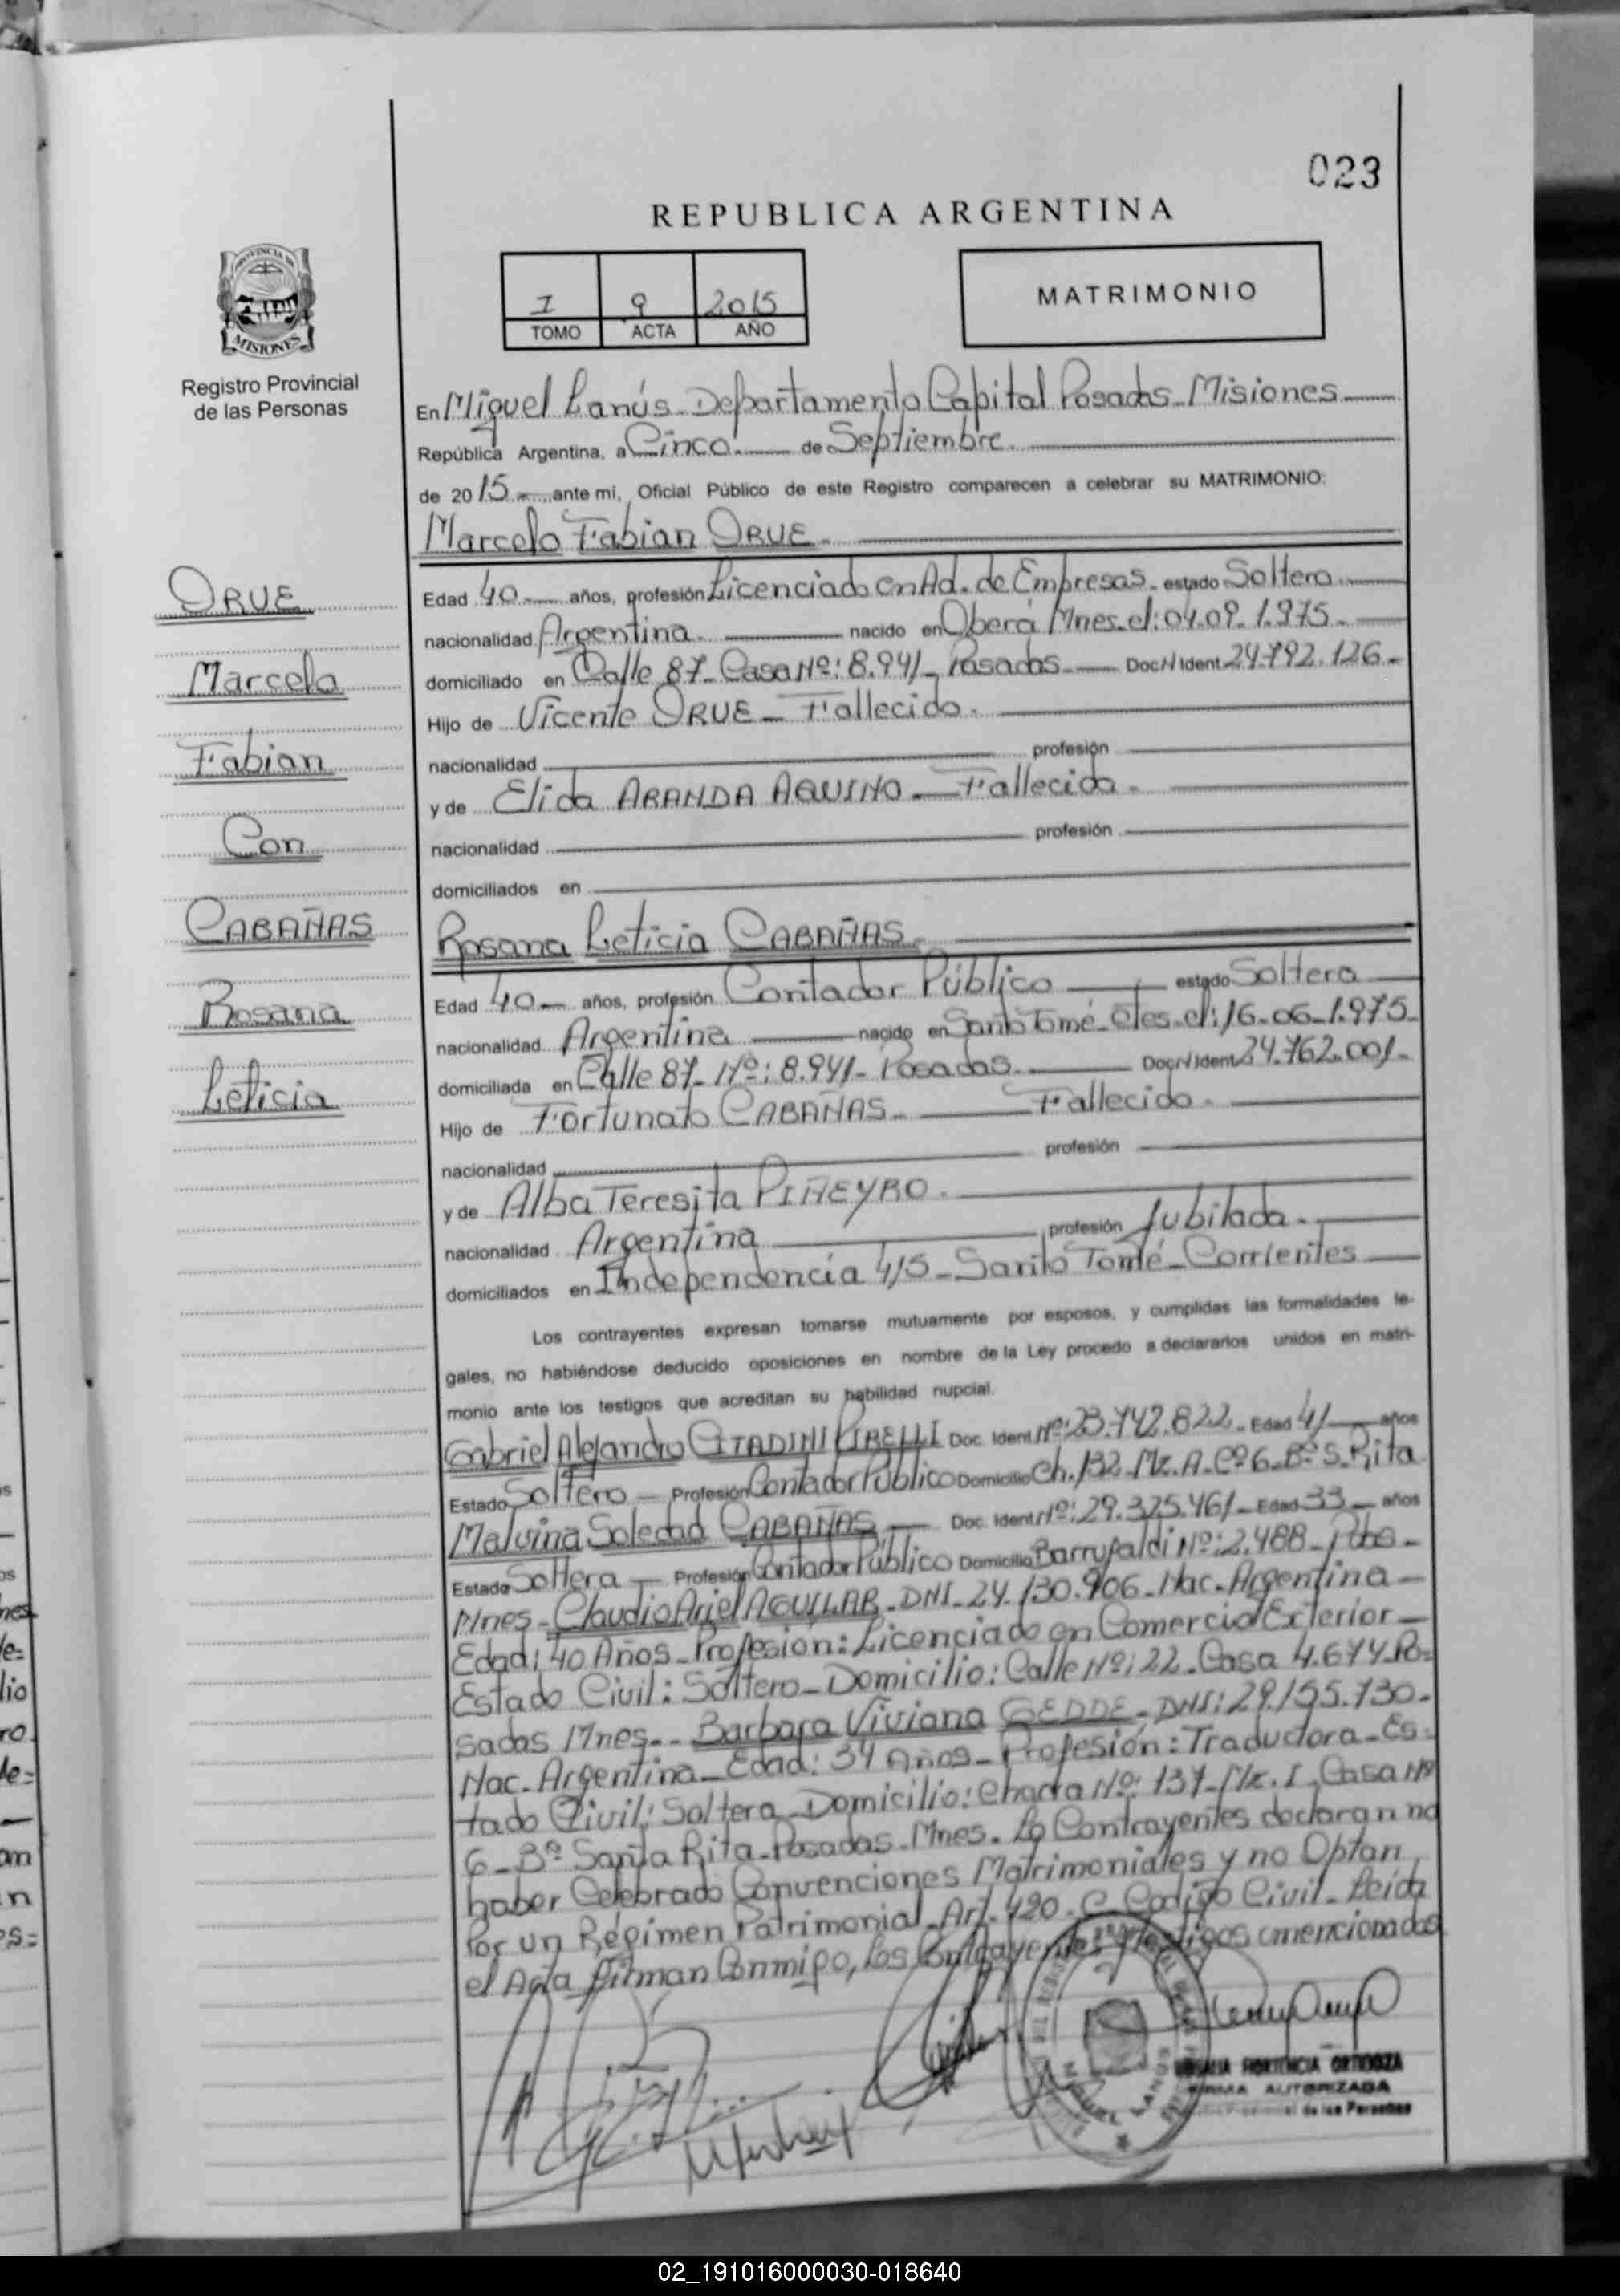 023
REPUBLICA ARGENTINA
I 9 2015
TOMO ACTA AÑO
MATRIMONIO
PROVINCIA DE
MISIONES
Registro Provincial
de las Personas
En Miguel Lanús - Departamento Capital Posadas - Misiones
República Argentina, a Cinco. de Septiembre.
de 2015 - ante mí, Oficial Público de este Registro comparecen a celebrar su MATRIMONIO:
Marcelo Fabian ORUE.
Edad 40 años, profesión Licenciado en Ad. de Empresas - estado Soltero
nacionalidad Argentina. nacido en Oberá Mnes. el: 04.09.1.975.
domiciliado en Calle 87 - Casa Nº: 8.941 - Posadas Doc. Ident. 24.792.126 -
Hijo de Vicente ORUE - Fallecido.
nacionalidad profesión
y de Elida ARANDA AQUINO - Fallecida.
nacionalidad profesión
domiciliados en
ORUE
Marcelo
Fabian
Con
CABAÑAS
Rosana
Leticia
Rosana Leticia CABAÑAS.
Edad 40 años, profesión Contador Público estado Soltera
nacionalidad Argentina nacido en Santo Tomé - Ctes. el: 16-06-1.975-
domiciliada en Calle 87 - Nº: 8.941 - Posadas Doc. Ident. 24.762.001 -
Hijo de Fortunato CABAÑAS - Fallecido.
nacionalidad profesión
y de Alba Teresita PIÑEYRO.
nacionalidad Argentina profesión Jubilada.
domiciliados en Independencia 415 - Santo Tomé - Corrientes
Los contrayentes expresan tomarse mutuamente por esposos, y cumplidas las formalidades le-
gales, no habiéndose deducido oposiciones en nombre de la Ley procedo a declararlos unidos en matri-
monio ante los testigos que acreditan su habilidad nupcial.
Gabriel Alejandro CITADINI KIRELLI Doc. Ident. Nº: 23.742.822 - Edad 41 años
Estado Soltero - Profesión Contador Público Domicilio Ch. 132 - Mz. A - Cº 6 - Bº S. Rita
Malvina Soledad CABAÑAS - Doc. Ident. Nº: 29.325.461 - Edad 33 - años
Estado Soltera - Profesión Contador Público Domicilio Barrufaldi Nº: 2.488 - Pdas -
Mnes - Claudio Ariel AGUILAR - DNI - 24.130.906 - Nac. Argentina -
Edad: 40 Años - Profesión: Licenciado en Comercio Exterior -
Estado Civil: Soltero - Domicilio: Calle Nº: 22 - Casa 4.674 Po=
sadas Mnes - - Barbara Viviana GEDDE - DNI: 29.155.730 -
Nac. Argentina - Edad: 34 Años - Profesión: Traductora - Es=
tado Civil: Soltera - Domicilio: Chacra Nº: 137 - Mz. I - Casa Nº
6 - Bº Santa Rita - Posadas - Mnes. Lo Contrayentes declaran no
haber Celebrado Convenciones Matrimoniales y no Optan
Por un Régimen Patrimonial - Art. 420 - C. Codigo Civil - Leida
el Acta Firman Conmigo, los Contrayentes y testigos mencionados
HORTENCIA ORTEGOZA
FIRMA AUTORIZADA
de las Personas
02_191016000030-018640